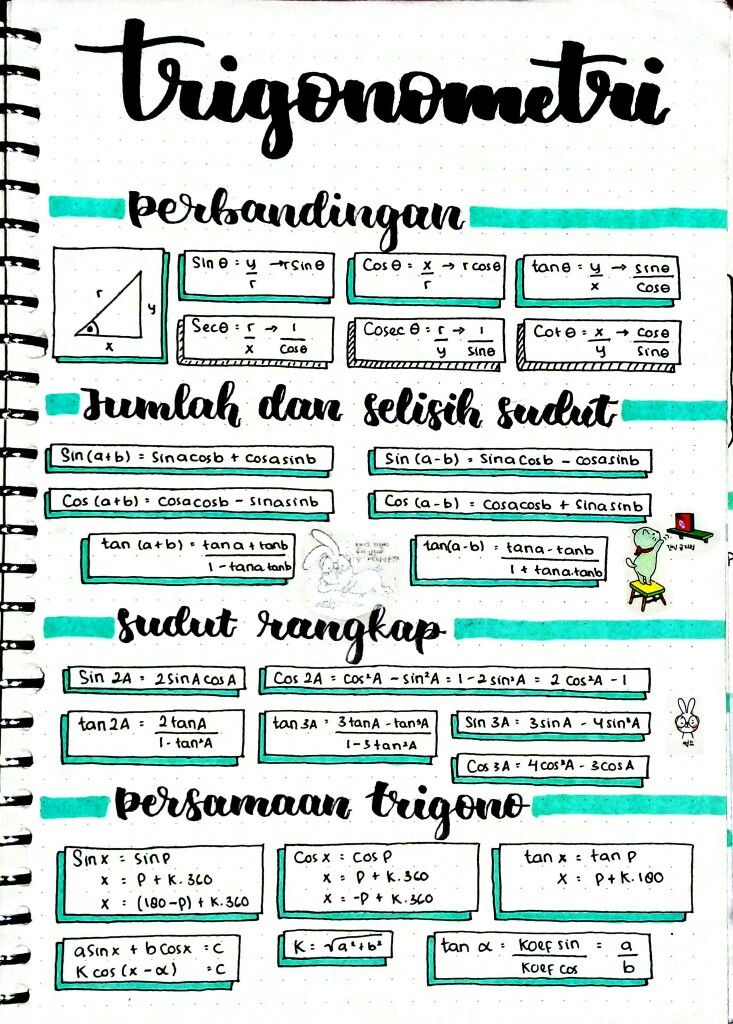 trigonometri
perbandingan
r
y
x
θ
Sin θ = y/r → r sin θ
Cos θ = x/r → r cos θ
tan θ = y/x → sin θ/cos θ
Sec θ = r/x → 1/cos θ
Cosec θ = r/y → 1/sin θ
Cot θ = x/y → cos θ/sin θ
Jumlah dan selisih sudut
Sin (a+b) = sin a cos b + cos a sin b
Sin (a-b) = sin a cos b - cos a sin b
Cos (a+b) = cos a cos b - sin a sin b
Cos (a-b) = cos a cos b + sin a sin b
tan (a+b) = tan a + tan b / 1 - tan a tan b
tan (a-b) = tan a - tan b / 1 + tan a.tan b
sudut rangkap
Sin 2A = 2 sin A cos A
Cos 2A = cos²A - sin²A = 1 - 2 sin²A = 2 cos²A - 1
tan 2A = 2 tan A / 1 - tan²A
tan 3A = 3 tan A - tan³A / 1 - 3 tan²A
Sin 3A = 3 sin A - 4 sin³A
Cos 3A = 4 cos³A - 3 cos A
persamaan trigono
Sin x = sin P
x = P + K.360
x = (180-P) + K.360
Cos x = cos P
x = P + K.360
x = -P + K.360
tan x = tan P
x = P + K.180
a sin x + b cos x = C
K cos (x - α) = C
K = √a²+b²
tan α = Koef sin / Koef cos = a/b